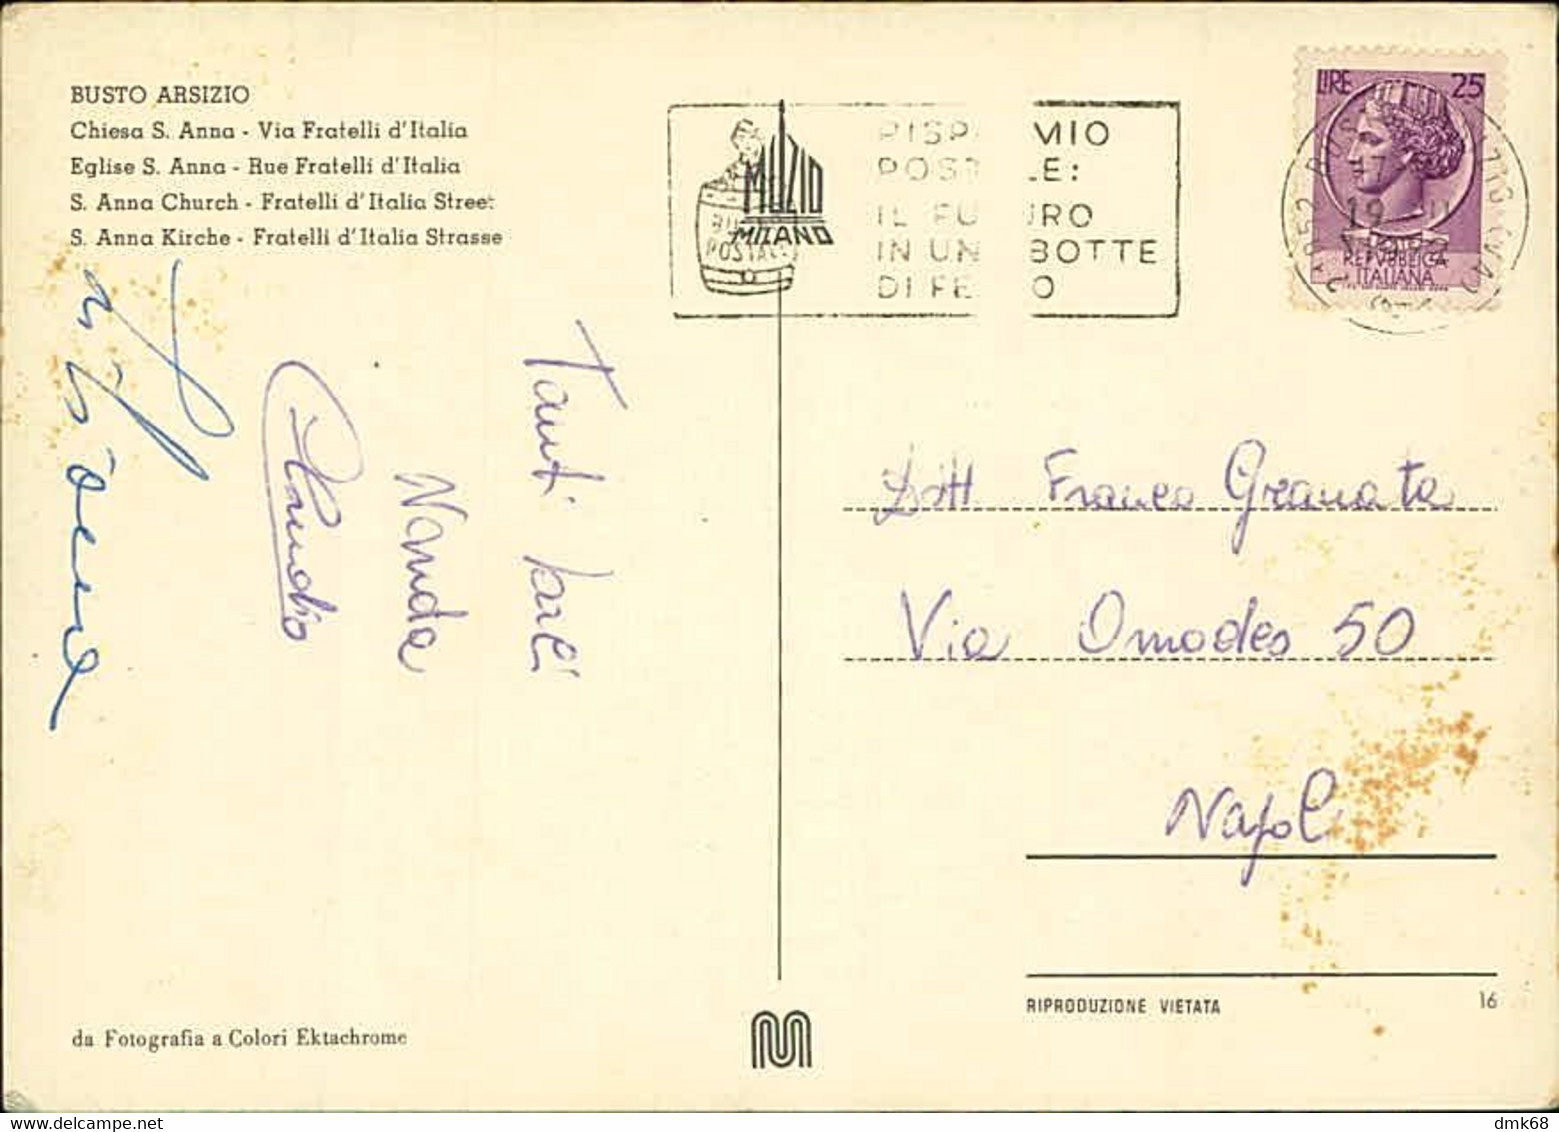 BUSTO ARSIZIO
Chiesa S. Anna - Via Fratelli d'Italia
Eglise S. Anna - Rue Fratelli d'Italia
S. Anna Church - Fratelli d'Italia Street
S. Anna Kirche - Fratelli d'Italia Strasse
Tanti
Nanda
Claudio
da Fotografia a Colori Ektachrome
MUZIO
MILANO
POSTALI
RISP MIO
POST LE:
IL FU URO
IN UN BOTTE
DI FE O
LIRE 25
19
REPVBBLICA
ITALIANA
Dott Franco Granata
Via Omodeo 50
Napoli
RIPRODUZIONE VIETATA 16
dmk68